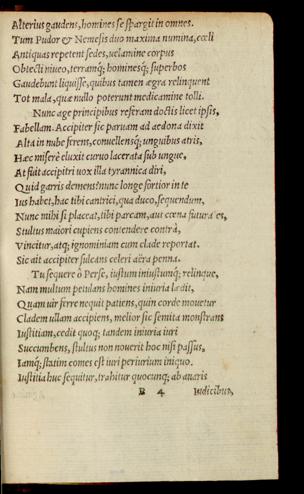 Alterius gaudens, homines se spargit in omnes.
Tum Pudor & Nemesis duo maxima numina, cœli
Antiquas repetent sedes, uelamine corpus
Obtecti niueo, terramq; hominesq; superbos
Gaudebunt liquisse, quibus tamen ægra relinquent
Tot mala, quæ nullo poterunt medicamine tolli.
Nunc age principibus referam doctis licet ipsis,
Fabellam. Accipiter sic paruam ad aedona dixit
Alta in nube ferens, conuellensq; unguibus atris,
Hæc miserè eluxit curuo lacerata sub ungue,
At fuit accipitri uox illa tyrannica diri,
Quid garris demens? nunc longe fortior in te
Ius habet, hac tibi cantrici, qua duco, sequendum,
Nunc mihi si placeat, tibi parcam, aut cœna futura es,
Stultus maiori cupiens contendere contrà,
Vincitur, atq; ignominiam cum clade reportat.
Sic ait accipiter sulcans celeri aëra penna.
Tu sequere ô Perse, iustum iniustumq; relinque,
Nam multum petulans homines iniuria lædit,
Quam uir ferre nequit patiens, quin corde mouetur
Cladem ullam accipiens, melior sic semita monstrans
Iustitiam, cedit quoq; tandem iniuria iuri
Succumbens, stultus non nouerit hoc nisi passus,
Iamq; statim comes est iuri periurium iniquo.
Iustitia huc sequitur, trahitur quocunq; ab auaris
B 4 Iudicibus,